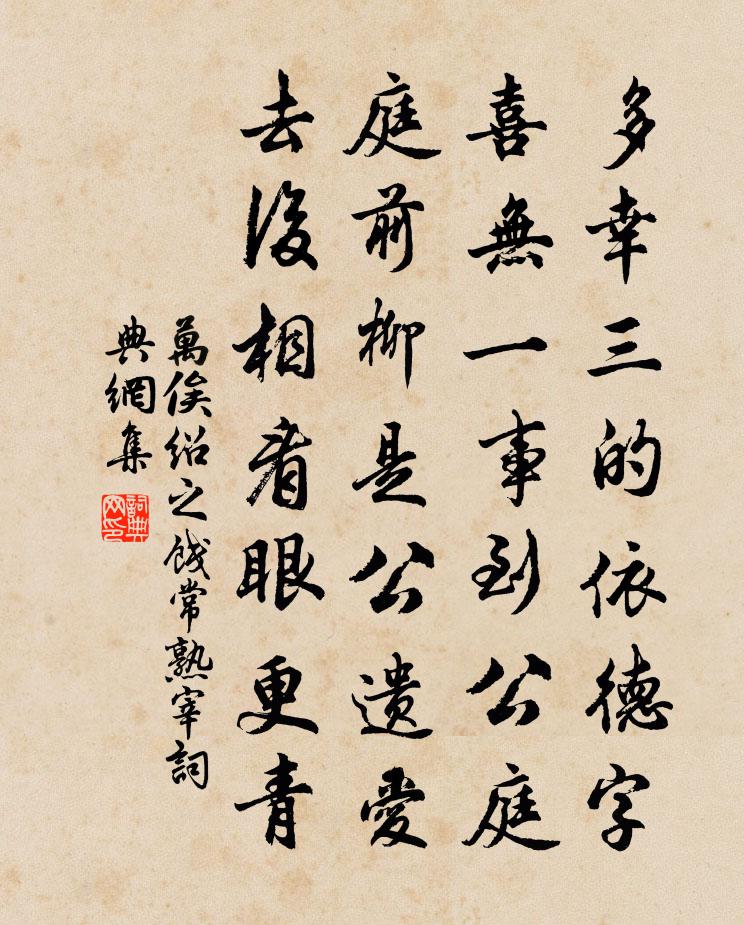 多幸三的依德字
喜無一事到公庭
庭前柳是公遺愛
去後相看眼更青
萬俟紹之餞常熟宰詞
典網集
詞典
网印